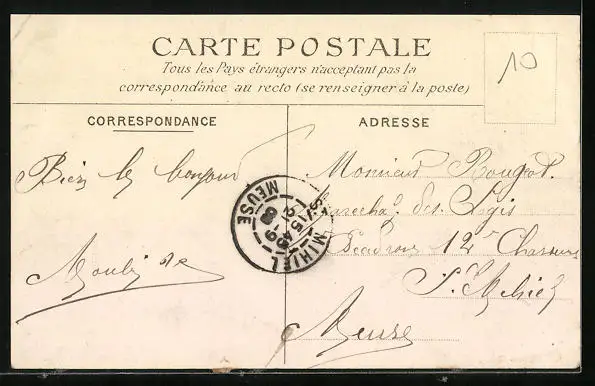 CARTE POSTALE
Tous les Pays étrangers n'acceptant pas la
correspondance au recto (se renseigner à la poste)
10
CORRESPONDANCE
Bien le bonjour
ADRESSE
Monsieur Rougeot
Marechal des Logis
Escadron 12e Chasseurs
St Mihiel
Meuse
ST MIHIEL
MEUSE